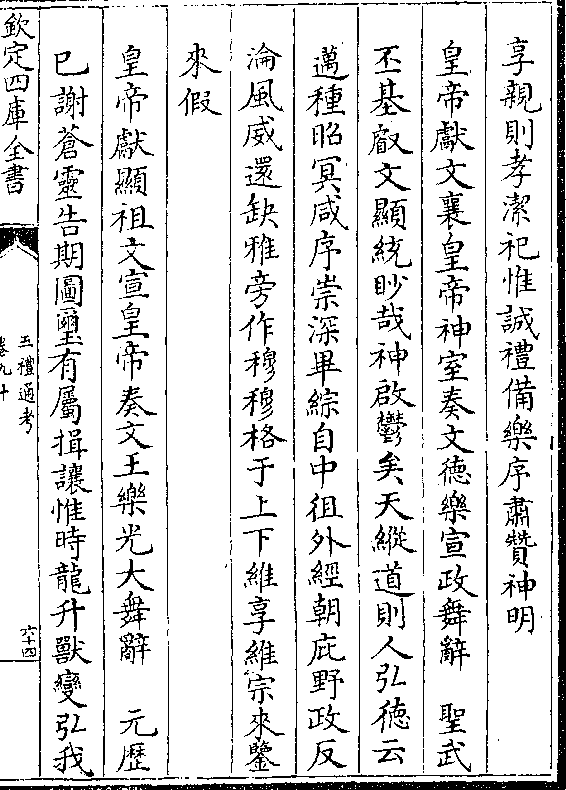 享親則孝潔祀惟誠禮備樂序肅贊神明
皇帝獻文襄皇帝神室奏文德樂宣政舞辭　聖武
丕基叡文顯統眇哉神啟鬱矣天縱道則人弘德云
邁種昭冥咸序崇深畢綜自中徂外經朝庇野政反
淪風威還缺雅旁作穆穆格于上下維享維宗來鑒
來假
皇帝獻顯祖文宣皇帝奏文王樂光大舞辭　元歴
已謝蒼靈告期圖璽有屬揖讓惟時龍升獸變弘我
欽定四庫全書
五禮通考
卷九十
六十四